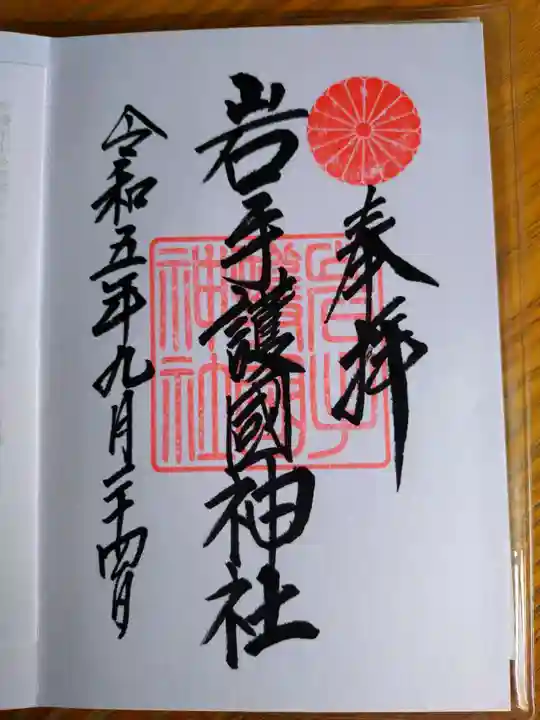 奉拝
岩手護國神社
岩手
護國
神社
令和五年九月二十四日